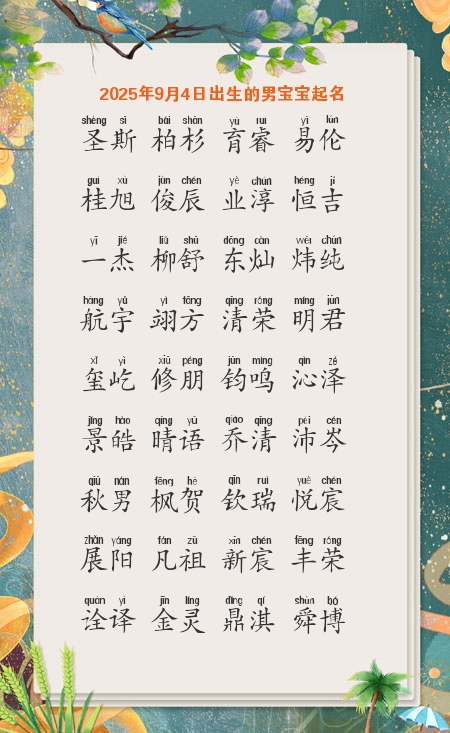 2025年9月4日出生的男宝宝起名
shèng sī bǎi shān yù ruì yì lún
圣斯 柏杉 育睿 易伦
guì xù jùn chén yè chún héng jí
桂旭 俊辰 业淳 恒吉
yī jié liǔ shū dōng càn wěi chún
一杰 柳舒 东灿 炜纯
háng yǔ yì fāng qīng róng míng jūn
航宇 翊方 清荣 明君
xǐ yì xiū péng jūn míng qìn zé
玺屹 修朋 钧鸣 沁泽
jǐng hào qíng yǔ qiáo qīng pèi cén
景皓 晴语 乔清 沛岑
qiū nán fēng hè qīn ruì yuè chén
秋男 枫贺 钦瑞 悦宸
zhǎn yáng fán zǔ xīn chén fēng róng
展阳 凡祖 新宸 丰荣
quán yì jīn líng dǐng qí shùn bó
诠译 金灵 鼎淇 舜博